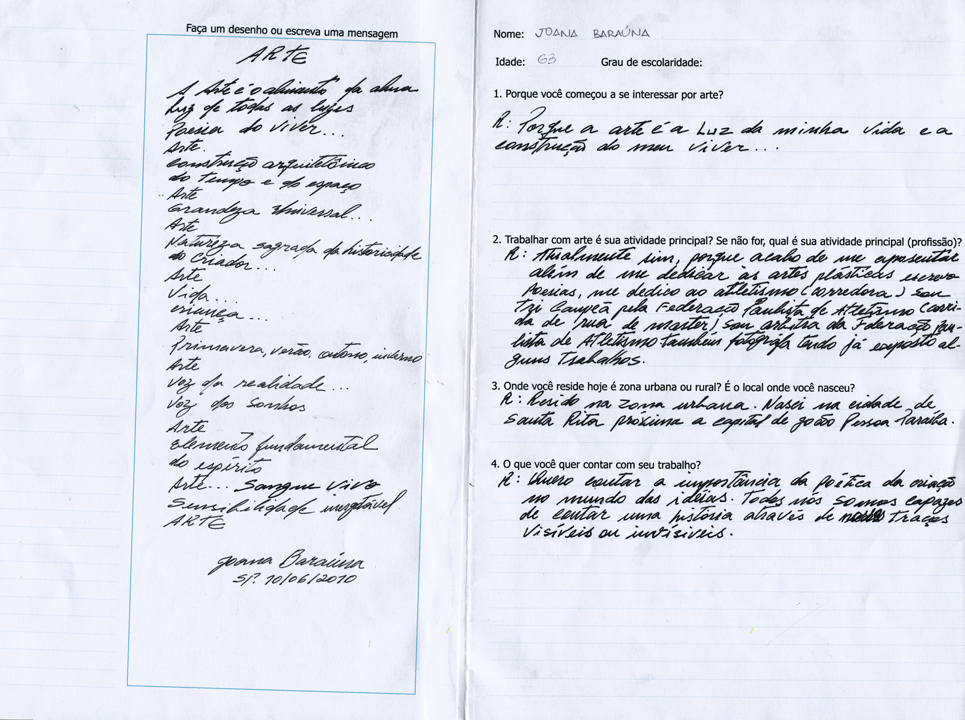 Faça um desenho ou escreva uma mensagem
ARTE
A Arte é o alimento da alma
Luz de todas as luzes
Poesia do viver...
Arte.
construção arquitetônica
do Tempo e do espaço
Arte
Grandeza Universal...
Arte
Natureza sagrada da historicidade
do Criador...
Arte
Vida...
criança...
Arte
Primavera, verão, outono, inverno
Arte
Voz da realidade...
Voz dos Sonhos
Arte
Elemento fundamental
do espírito
Arte... Sangue Vivo
Sensibilidade inesgotável
ARTE
Joana Baraúna
SP. 10/06/2010
Nome: JOANA BARAÚNA
Idade: 63 Grau de escolaridade:
1. Porque você começou a se interessar por arte?
R: Porque a arte é a Luz da minha vida e a
construção do meu viver...
2. Trabalhar com arte é sua atividade principal? Se não for, qual é sua atividade principal (profissão)?
R: Atualmente sim, porque acabo de me aposentar
além de me dedicar às artes plásticas escrevo
Poesias, me dedico ao atletismo (corredora) sou
Tri Campeã pela Federação Paulista de Atletismo (corri-
da de rua de master) sou arbitra da Federação Pau-
lista de Atletismo também fotógrafa tendo já exposto al-
guns Trabalhos.
3. Onde você reside hoje é zona urbana ou rural? É o local onde você nasceu?
R: Resido na zona urbana. Nasci na cidade de
Santa Rita próxima a capital de João Pessoa Paraíba.
4. O que você quer contar com seu trabalho?
R: Quero contar a importância da poética da criação
no mundo das idéias. Todos nós somos capazes
de contar uma história através de traços
visíveis ou invisíveis.